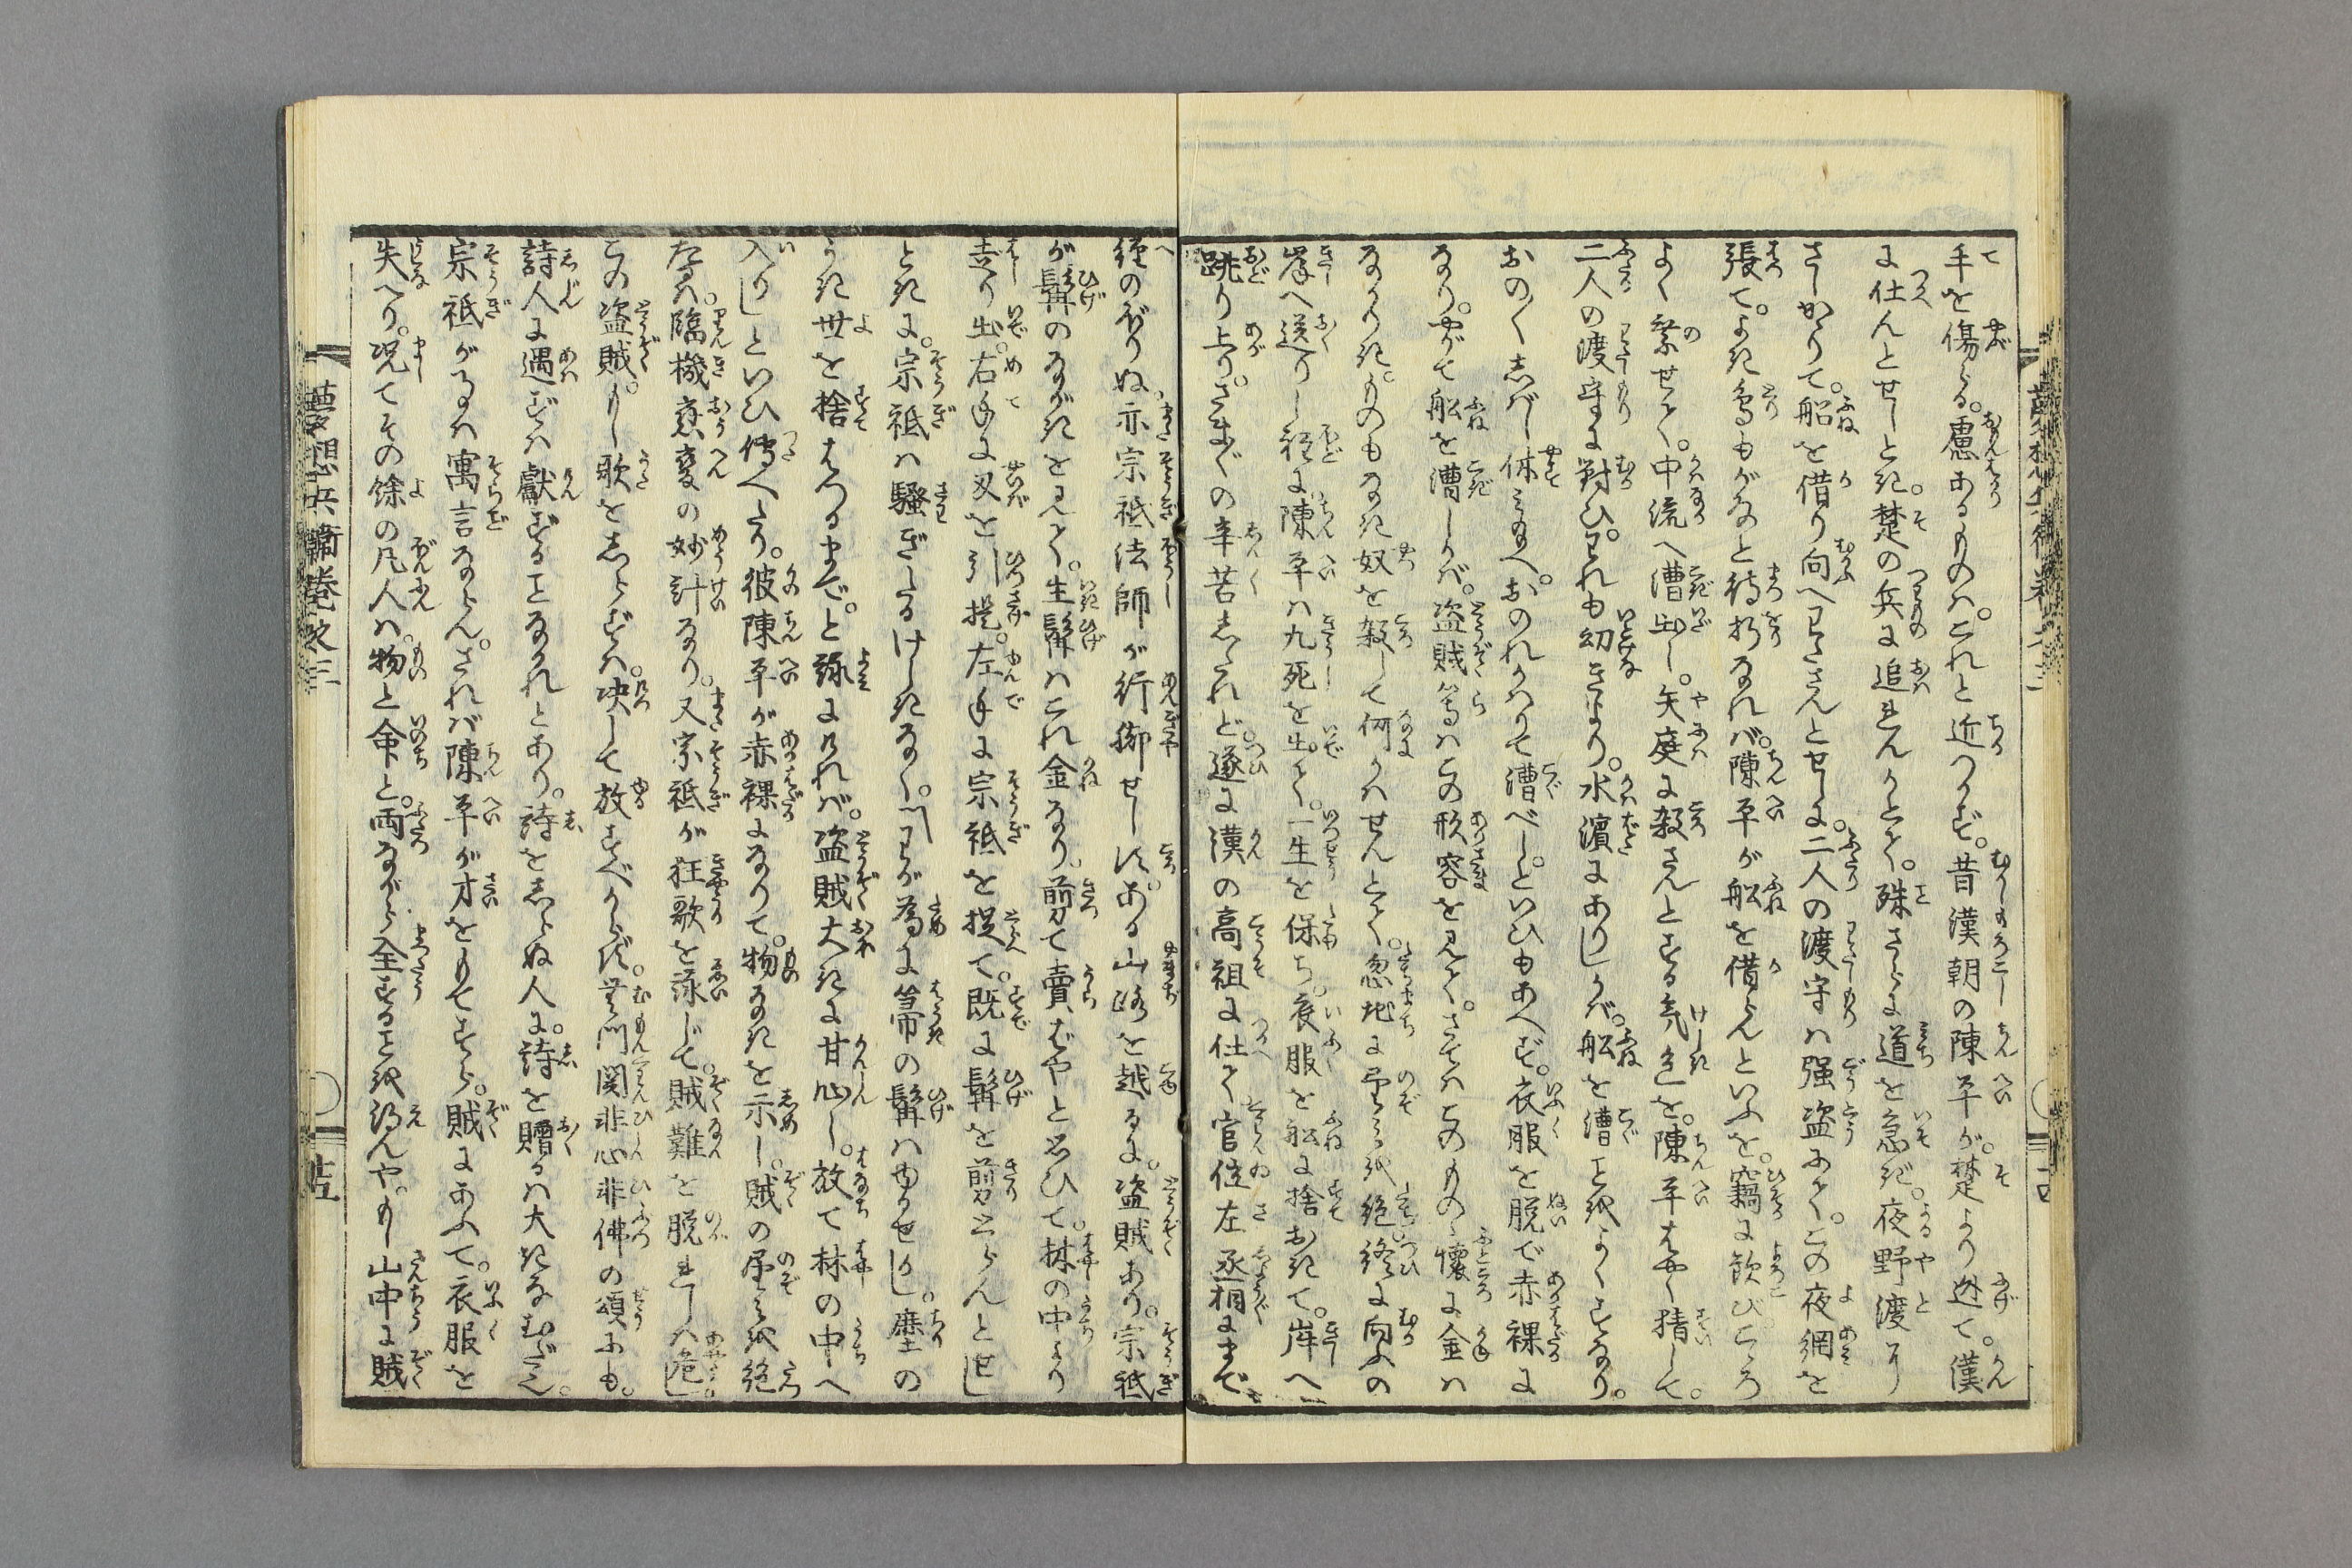 手を傷る。慮あるものは。これと近つかず。昔漢朝の陳平が。楚より迯て。漢
に仕んとせしとき。楚の兵に追れんかとて。殊さらに道を急ぎ。夜野渡に
さしかゝりて。船を借り向へわたさんとせしに。二人の渡守は强盗にて。この夜網を
張て。よき鳥もがなと待折なれば。陳平が船を借らんといふを。竊に歓びこゝろ
よく乗せて。中流へ漕出し。矢庭に殺さんとする気色を。陳平はやく猜して。
二人の渡守に對ひ。われも幼きより。水濱にありしかば。船を漕ことをよくするなり。
おの〳〵しばし休み給へ。おのれかはりて漕べしといひもあへず。衣服を脱で赤裸に
なり。やがて船を漕しかば。盗賊等はこの形容を見て。さてはこのもの懐に金は
なかりき。ものもなき奴を殺して何かはせんとて。忽地に望みを絶。終に向ふの
岸へ送りし程に陳平は九死を出て。一生を保ち。衣服を船に捨おきて。岸へ
跳り上り。さま〴〵の辛苦したれど。遂に漢の高祖に仕て官位左丞相にまで
経のぼりぬ。亦宗祇法師が行脚せし比。ある山路を越るに。盗賊あり。宗祇
が髯のながきを見て。生髯はこれ金なり。剪て賣ばやと思ひて。林の中より
走り出。右手に刃を引提。左手に宗祇を捉て。既に髯を剪とらんとせし
ときに。宗祇は騒ぎたるけしきなく。わが為に箒の髯はゆるせかし。塵の
うき世を捨はつるまで。と詠にければ。盗賊大きに甘心し。放て林の中へ
入りしといひ傳へたり。彼陳平が赤裸になりて。物なきを示し。賊の望みを絶
たるは。臨機應變の妙計なり。又宗祇が狂歌を詠じて。賊難を脱れしは危し。
この盗賊。もし歌をしらずは。决して放すべからず。無門関非心非佛の頌にも。
詩人に遇ずは獻ずることなかれとあり。詩をしらぬ人に。詩を贈るは大きなむだ也。
宗祇がうたは寓言ならん。されば陳平が才をもてすら。賊にあふて。衣服を
失へり。况てその餘の凡人は。物と命と。両ながら全することを得んや。もし山中に賊
夢想兵衛巻之三
十五